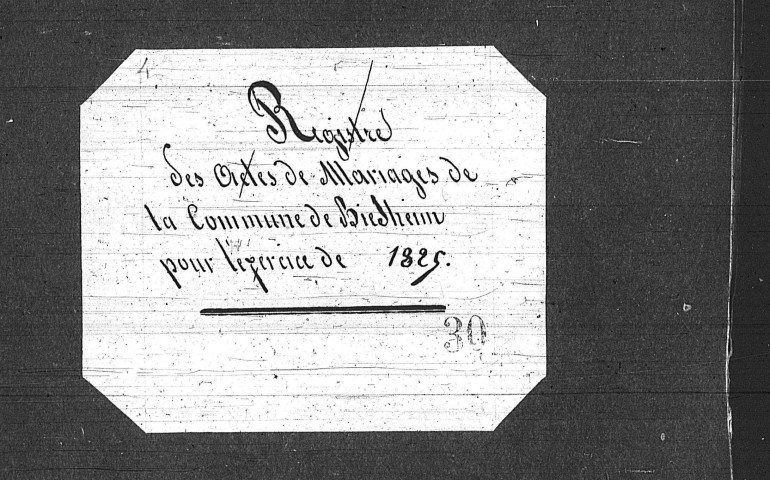 Registre
des Actes de Mariages de
la Commune de Biesheim
pour l'exercice de 1825.
30